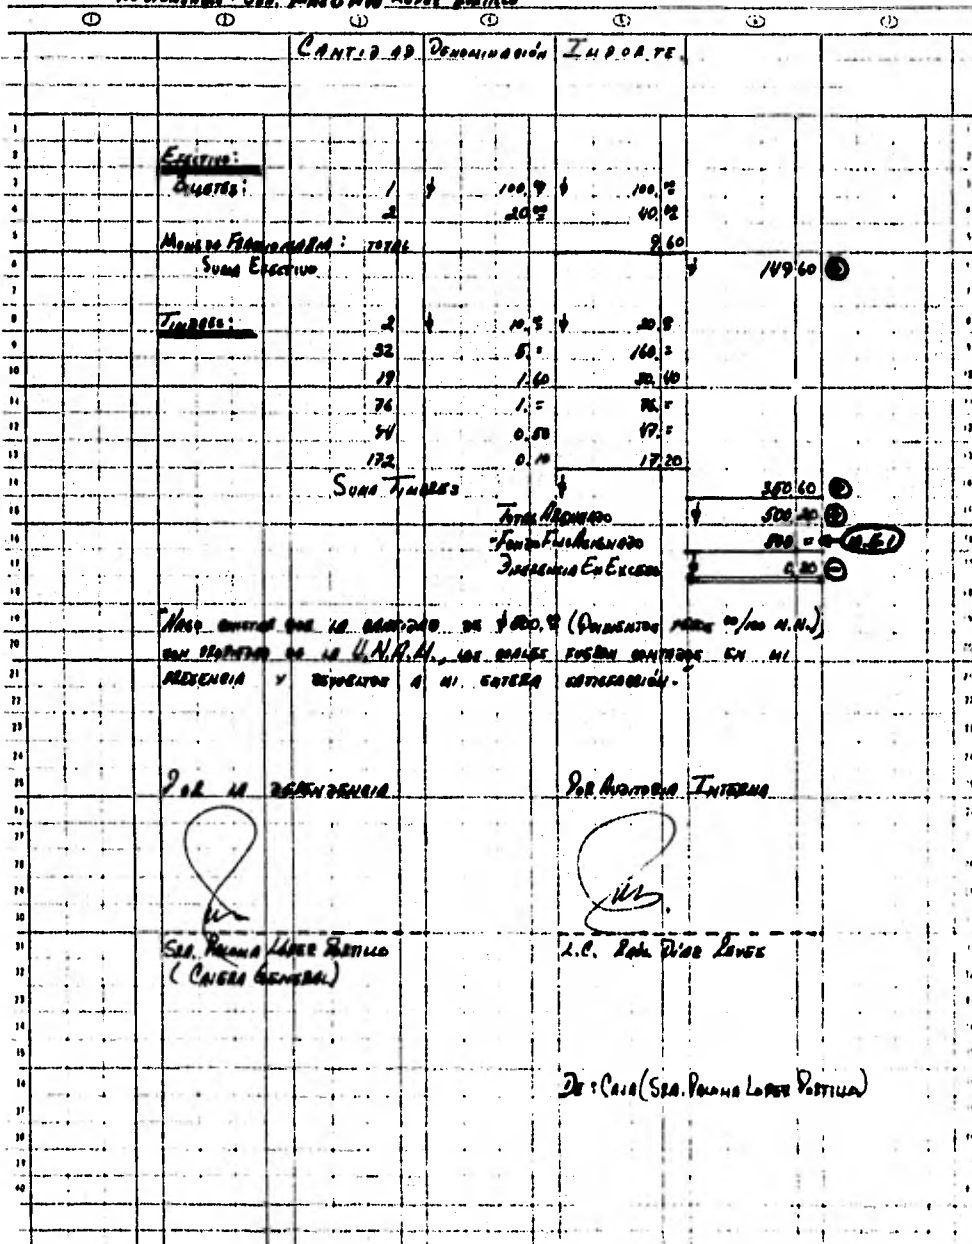 LOPEZ PORTILLO
CANTIDAD DENOMINACIÓN IMPORTE
EFECTIVO:
BILLETES: 1 $ 100.00 $ 100.00
2 20.00 40.00
MONEDA FRACCIONARIA: TOTAL 9.60
SUMA EFECTIVO $ 149.60
TIMBRES: 2 $ 10.00 $ 20.00
32 5.= 160.=
19 1.60 30.40
76 1.= 76.=
94 0.50 47.=
172 0.10 17.20
SUMA TIMBRES $ 350.60
TOTAL ARQUEADO $ 500.20
FONDO FIJO ASIGNADO 500 =
DIFERENCIA EN EXCESO $ 0.20
HAGO CONSTAR QUE LA CANTIDAD DE $500.00 (QUINIENTOS PESOS 00/100 M.N.)
SON PROPIEDAD DE LA U.N.A.M., LOS CUALES FUERON CONTADOS EN MI
PRESENCIA Y DEVUELTOS A MI ENTERA SATISFACCIÓN.
POR LA DEPENDENCIA POR AUDITORIA INTERNA
SRA. PALOMA LOPEZ PORTILLO L.C. RAÚL DÍAZ
(CAJERA GENERAL)
DE: CAJA (SRA. PALOMA LOPEZ PORTILLO)